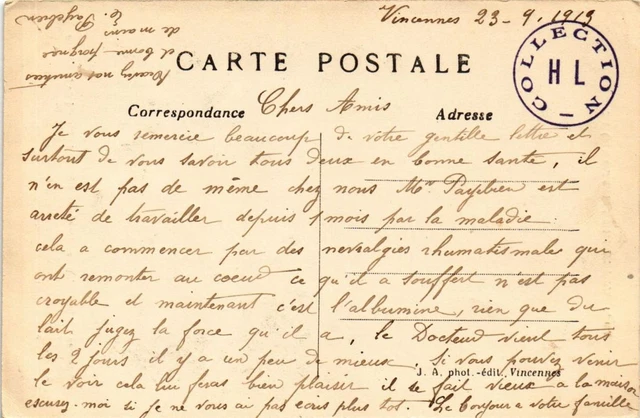 Vincennes 23-9. 1913
CARTE POSTALE
COLLECTION
H L
Correspondance
Adresse
Chers Amis
Je vous remercie beaucoup de votre gentille lettre et
surtout de vous savoir tous deux en bonne sante, il
n'en est pas de même chez nous Mr Payebien est
arreté de travailler depuis 1 mois par la maladie.
cela a commencer par des nevralgies rhumatismale qui
ont remonter au coeur ce qu'il a souffert n'est pas
croyable et maintenant c'est l'albumine, rien que du
lait jugez la force qu'il a, le Docteur vient tous
les 2 jours il y a un peu de mieux. si vous pouvez venir
J. A. phot.-édit., Vincennes
le voir cela lui feras bien plaisir il se fait vieux a la maison
escusez-moi si je ne vous ai pas ecris plus tot. Le bonjour a votre famille
nos amitiés
et bonne poignée
de main
E. Payebien